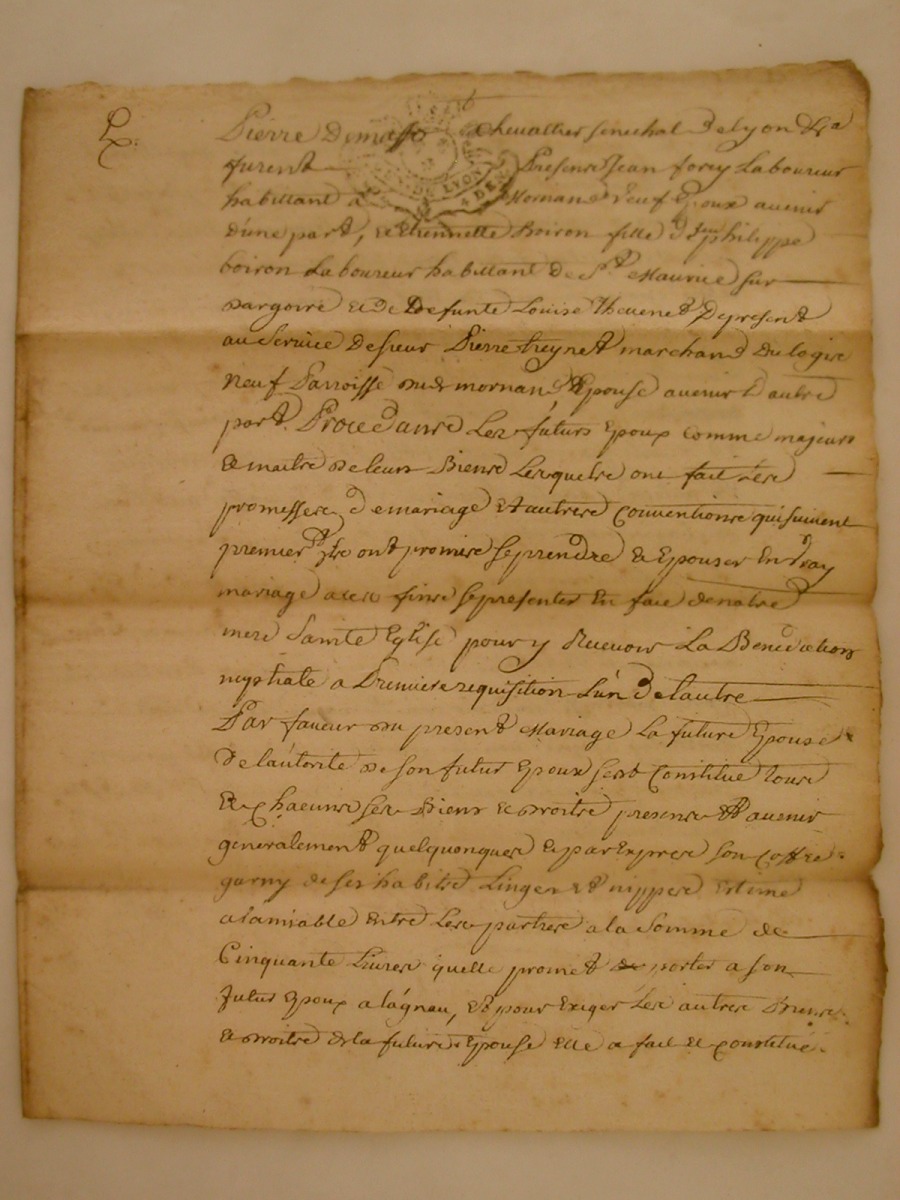 Pierre Demasso chevallier senechal de lyon & ca
furent presens Jean forey Laboureur
habittant a Mornand veuf Epoux avenir
d'une part, et Etiennette Boiron fille d feu philippe
boiron Laboureur habittant de St Maurice sur
dargoire et de Defunte Louise thevenet Depresent
au service de sieur Pierre freynet marchand du logis
neuf Parroisse dud mornand Epouse avenir d autre
part. Procedants Les futurs Epoux comme majeurs
et maitre de leurs Biens Lesquels ont fait les
promesses de mariage et autres conventions qui suivent
premierᵗ ils ont promis se prendre et Epouser En vray
mariage a ces fins se presenter En face de notre
mere Sainte Eglise pour y Recevoir La Benediction
nuptiale a Premiere requisition L'un de L'autre
Par faveur du present Mariage La future Epouse
de l'autorité de son futur Epoux sest Constitué tous
Et chacuns ses Biens et droits presens et avenir
generalement quelquonques et par Exprès son coffre
garny de ses habits Linges et nippes Estimé
a l'amiable Entre Les parties a la Somme de
Cinquante Livres quelle promet porter a son
futur Epoux a lagneau, et pour Exiger les autres Biens
et droits de la future Epouse Elle a fait et constitué
DE LYON
4 DEN